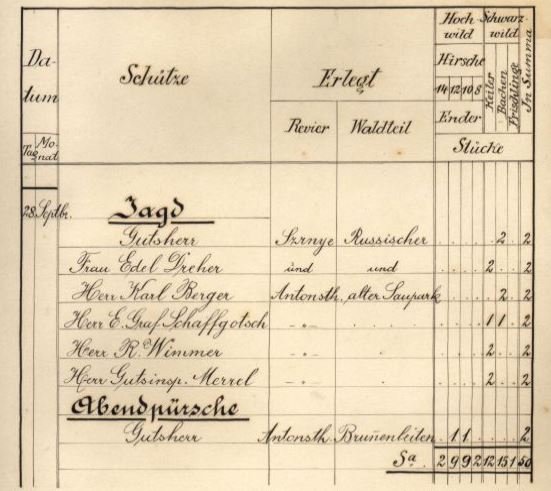 Da-
tum
Tag Mo-
nat
Schütze
Erlegt
Revier Waldteil
Hoch-
wild
Schwarz-
wild
Hirsche
14 12 10 8
Ender
Keiler
Bachen
Frischlinge
In Summa
Stücke
28. Septbr. Jagd
Gutsherr Szrnye Russischer . . . . . 2 . 2
Frau Edel Dreher und und . . . . 2 . . 2
Herr Karl Berger Antonsth. alter Saupark . . . . . 2 . 2
Herr E. Graf Schaffgotsch -„- . . . . . . . . 1 1 . 2
Herr R. Wimmer -„- . . . . . . . 2 . . 2
Herr Gutsinsp. Merrel -„- . . . . . . . 2 . . 2
Abendpürsche
Gutsherr Antonsth. Brunenleiten . 1 1 . . . . 2
Sa. 2 9 9 2 12 15 1 50